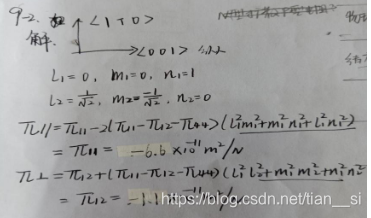 9-2.
解:
<1 1̄ 0>
<001>
L₁=0, m₁=0, n₁=1
L₂=1/√2, m₂=-1/√2, n₂=0
π∥=π₁₁-2(π₁₁-π₁₂-π₄₄)(L₁²m₁²+m₁²n₁²+L₁²n₁²)
=π₁₁=-6.6×10⁻¹¹m²/N
π⊥=π₁₂+(π₁₁-π₁₂-π₄₄)(L₁²L₂²+m₁²m₂²+n₁²n₂²
=π₁₂=-1.1×10⁻¹¹m²/N
https://blog.csdn.net/tian__si